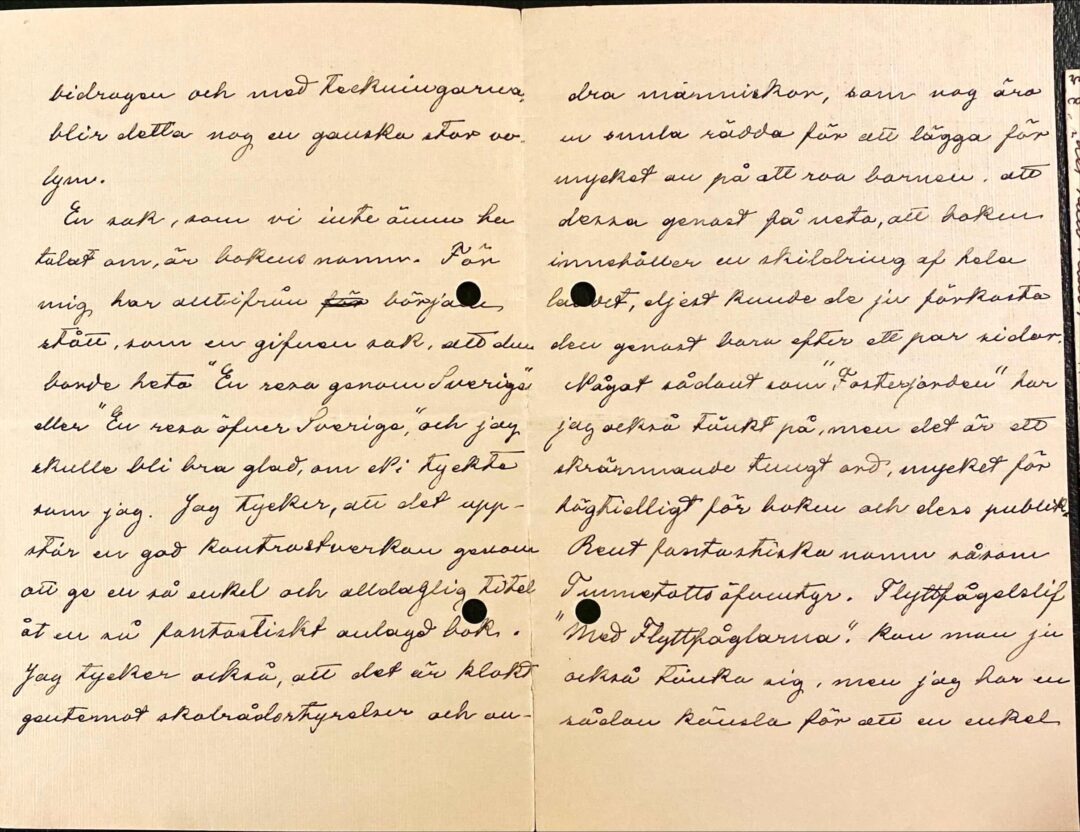 bidragen och med teckningarna,
blir detta nog en ganska stor vo-
lym.
En sak, som vi inte ännu ha
talat om, är bokens namn. För
mig har alltifrån för början
stått, som en gifven sak, att den
borde heta "En resa genom Sverige"
eller "En resa öfver Sverige", och jag
skulle bli bra glad, om Ni tyckte
som jag. Jag tycker, att det upp-
står en god kontrastverkan genom
att ge en så enkel och alldaglig titel
åt en så fantastiskt anlagd bok.
Jag tycker också, att det är klokt
gentemot skolrådstyrelser och an-
dra människor, som nog äro
en smula rädda för att lägga för
mycket an på att roa barnen, att
dessa genast få veta, att boken
innehåller en skildring af hela
landet, eljest kunde de ju förkasta
den genast bara efter ett par sidor.
Något sådant som "Fosterjorden" har
jag också tänkt på, men det är ett
skrämmande tungt ord, mycket för
högtidligt för boken och dess publik.
Rent fantastiska namn såsom
Tummetotts äfventyr. Flyttfågelslif
"Med Flyttfåglarna". kan man ju
också tänka sig, men jag har en
sådan känsla för att en enkel